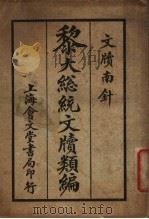 文牘南針
黎大總統文牘類編
上海會文堂書局印行